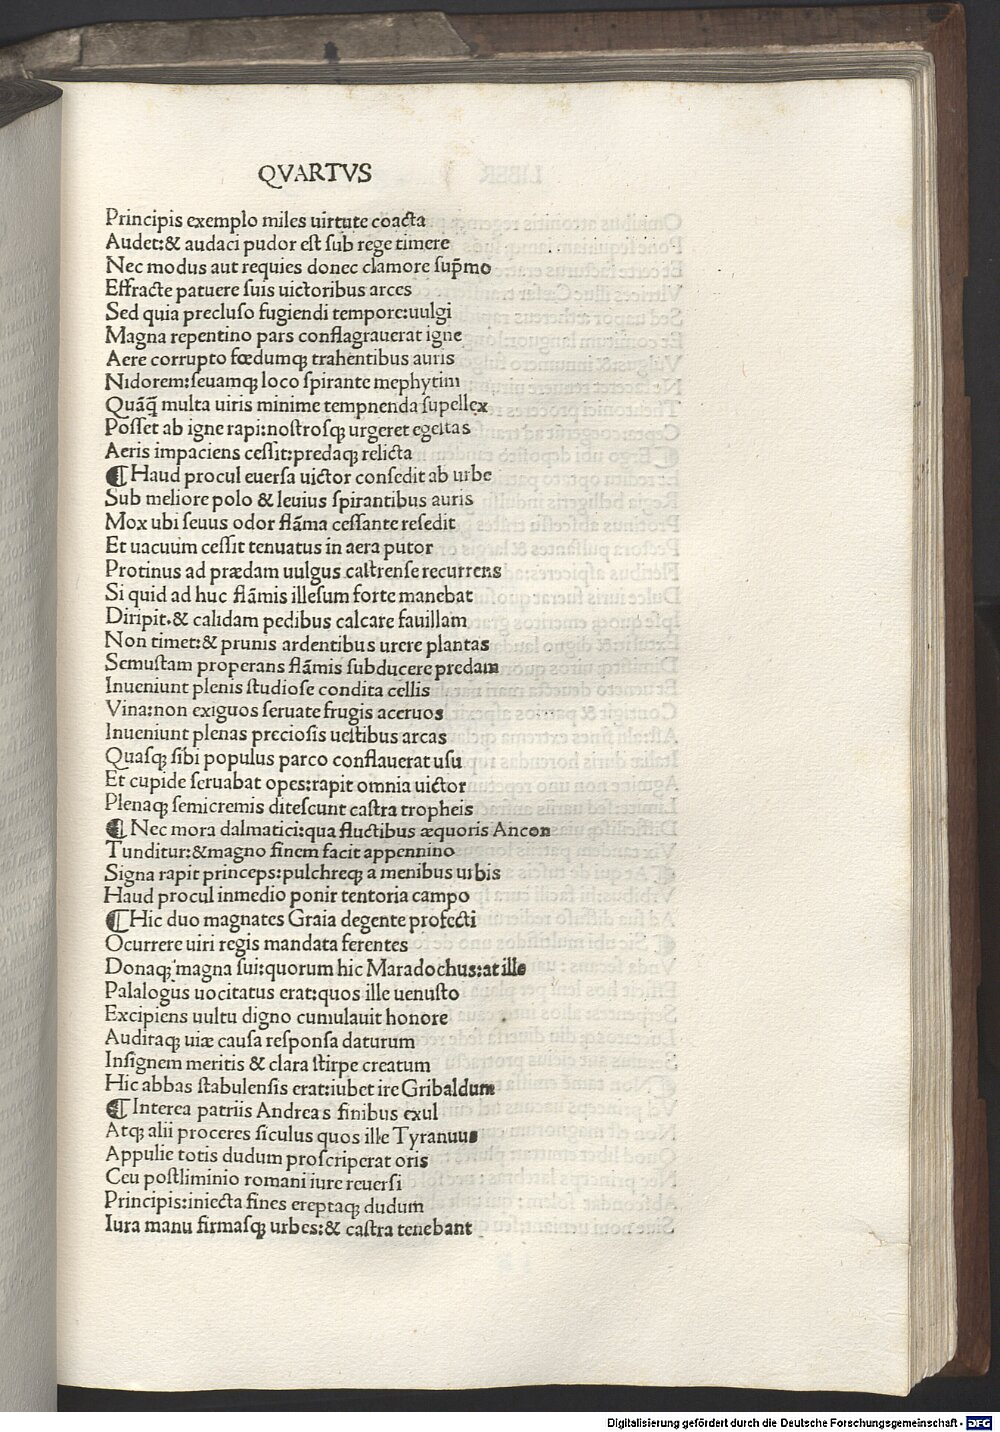 QVARTVS
Principis exemplo miles uirtute coacta
Audet:& audaci pudor est sub rege timere
Nec modus aut requies donec clamore sup̄mo
Effracte patuere suis uictoribus arces
Sed quia precluso fugiendi tempore:uulgi
Magna repentino pars conflagrauerat igne
Aere corrupto fœdumq; trahentibus auris
Nidorem:seuamq; loco spirante mephytim
Quāq̄ multa uiris minime tempnenda supellex
Posset ab igne rapi:nostrosq; urgeret egestas
Aeris impaciens cessit:predaq; relicta
¶ Haud procul euersa uictor consedit ab urbe
Sub meliore polo & leuius spirantibus auris
Mox ubi seuus odor flāma cessante resedit
Et uacuum cessit tenuatus in aera putor
Protinus ad prædam uulgus castrense recurrens
Si quid ad huc flāmis illesum forte manebat
Diripit.& calidam pedibus calcare fauillam
Non timet:& prunis ardentibus urere plantas
Semustam properans flāmis subducere predam
Inueniunt plenis studiose condita cellis
Vina:non exiguos seruate frugis aceruos
Inueniunt plenas preciosis uestibus arcas
Quasq; sibi populus parco conflauerat usu
Et cupide seruabat opes:rapit omnia uictor
Plenaq; semicremis ditescunt castra tropheis
¶ Nec mora dalmatici:qua fluctibus æquoris Ancon
Tunditur:&magno finem facit appennino
Signa rapit princeps:pulchreq; a menibus urbis
Haud procul inmedio ponir tentoria campo
¶ Hic duo magnates Graia degente profecti
Ocurrere uiri regis mandata ferentes
Donaq; magna sui:quorum hic Maradochus:at ille
Palalogus uocitatus erat:quos ille uenusto
Excipiens uultu digno cumulauit honore
Auditaq; uiæ causa responsa daturum
Insignem meritis & clara stirpe creatum
Hic abbas stabulensis erat:iubet ire Gribaldum
¶ Interea patriis Andreas finibus exul
Atq; alii proceres siculus quos ille Tyranuus
Appulie totis dudum proscriperat oris
Ceu postliminio romani iure reuersi
Principis:iniecta fines ereptaq; dudum
Iura manu firmasq; urbes:& castra tenebant
Digitalisierung gefördert durch die Deutsche Forschungsgemeinschaft - DFG